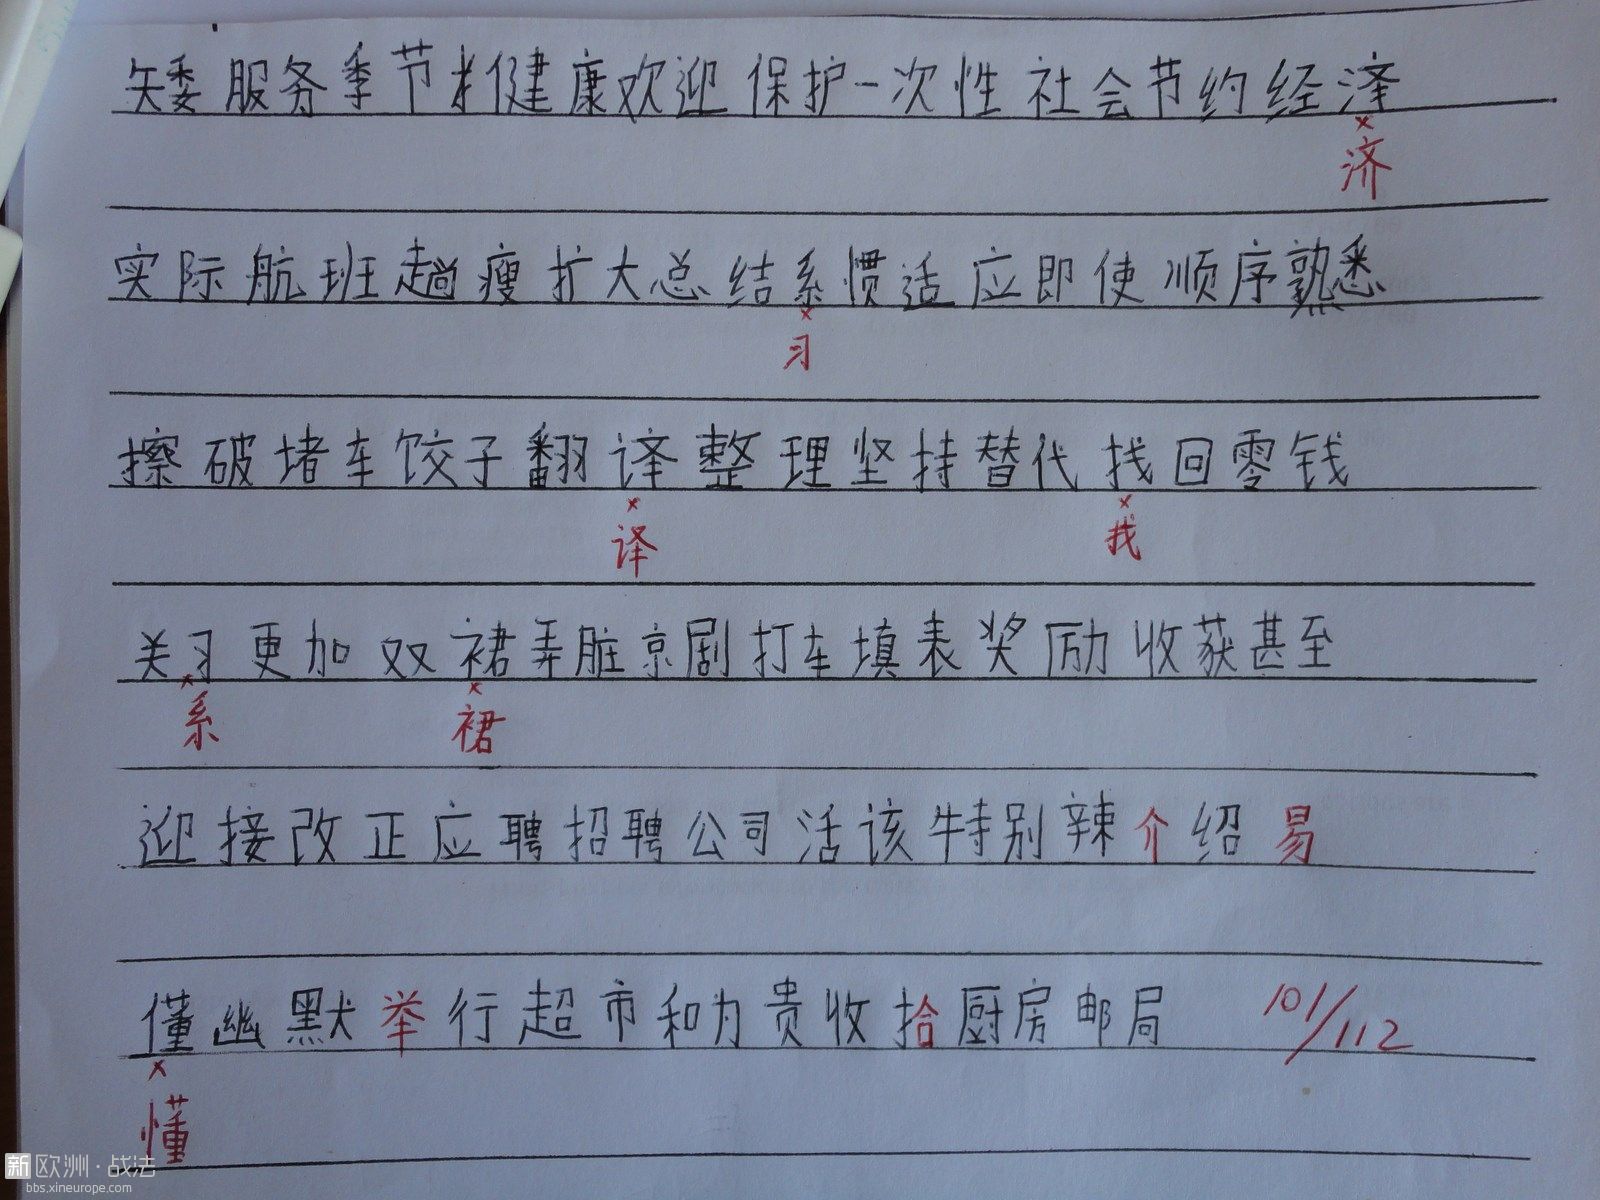 矮服务季节健康欢迎保护一次性社会节约经
济
实际航班趟瘦扩大总结系惯适应即使顺序熟悉
习
擦破堵车饺子翻译整理坚持替代找回零钱
译 找
关习更加双裙弄脏京剧打车填表奖励收获甚至
系 裙
迎接改正应聘招聘公司活该特别辣介绍易
懂幽默举行超市和为贵收拾厨房邮局 101/112
懂
新欧洲·战法
bbs.xineurope.com